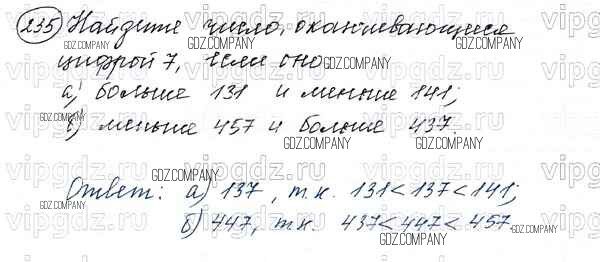 235 Найдите число, оканчивающееся
цифрой 7, если оно
а) больше 131 и меньше 141;
б) меньше 457 и больше 437.
Ответ: а) 137, т.к. 131<137<141;
б) 447, т.к. 437<447<457.